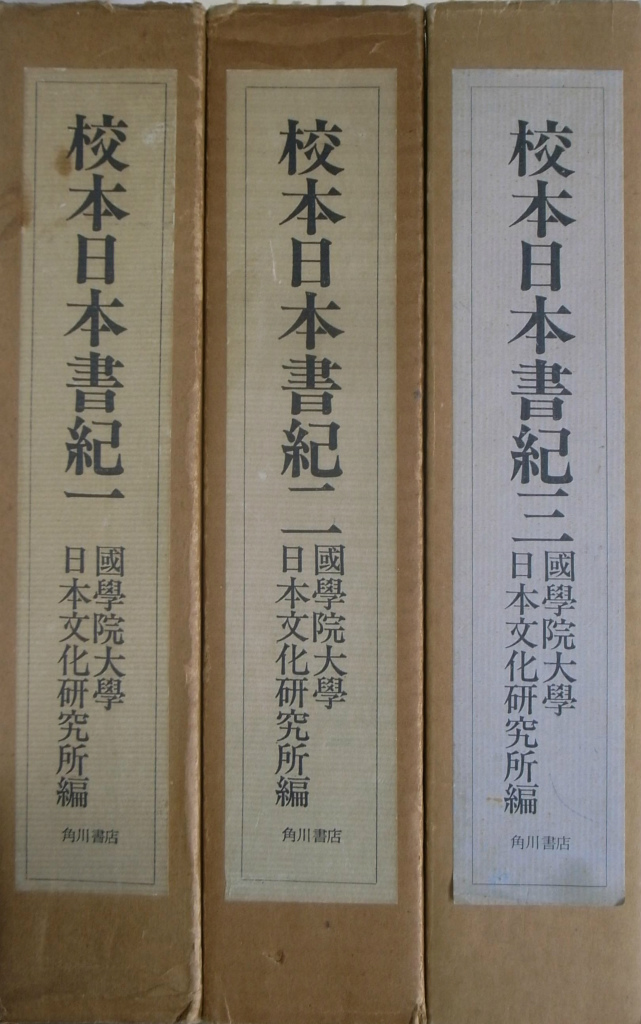 校本日本書紀一
國學院大學
日本文化研究所編
角川書店
校本日本書紀二
國學院大學
日本文化研究所編
角川書店
校本日本書紀三
國學院大學
日本文化研究所編
角川書店